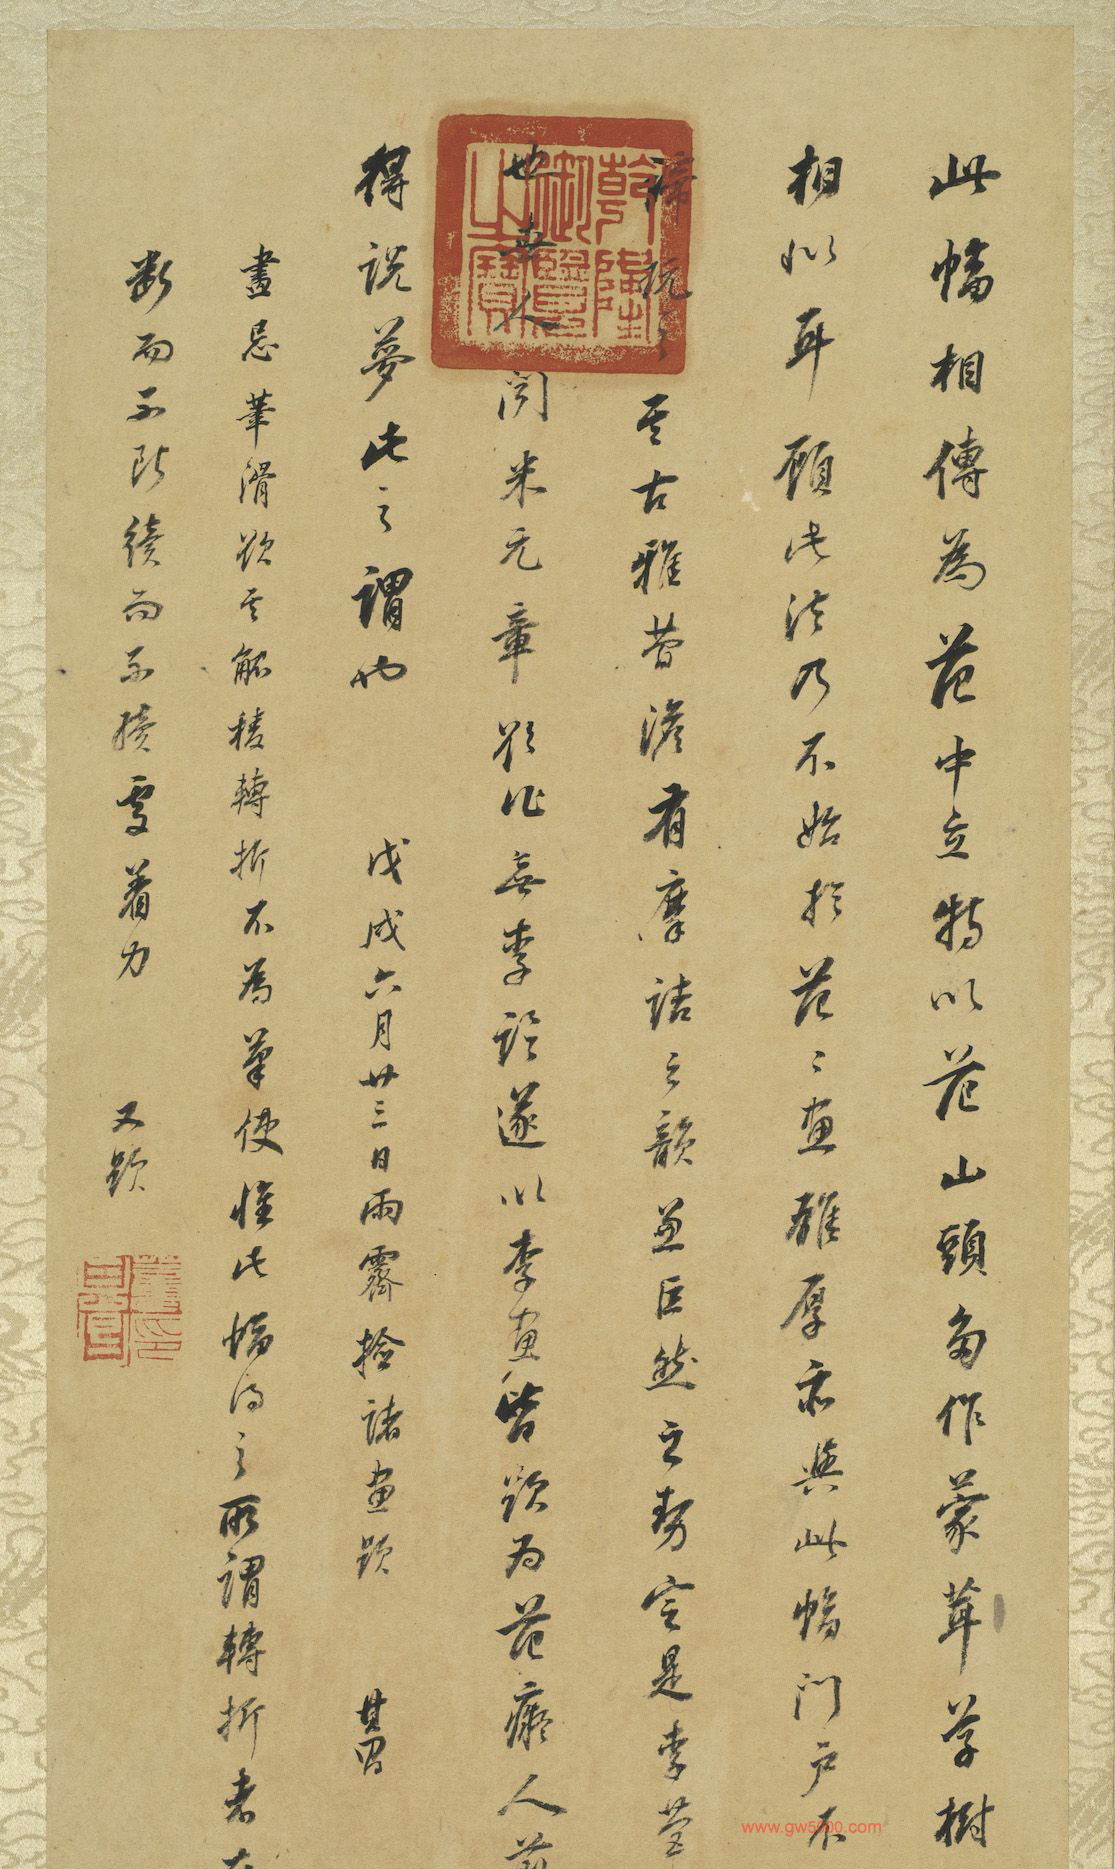 此幅相傳為范中立特以范山頭多作蒙茸草樹
相似耳顧此法乃不始於范范畫雖厚亦與此幅門戶不
諦玩之其古雅蒼澹有摩詰之韻並巨然之勢定是李營
也昔人聞米元章欲作無李論遂以李畫皆題為范癡人前
得說夢此之謂也
戊戌六月廿三日雨霽撿諸畫題 其昌
畫忌筆滑欲其觚稜轉折不為筆使惟此幅得之所謂轉折者在
斷而不斷續而不續處着力
又題
乾隆御覽之寶
www.gw5000.com